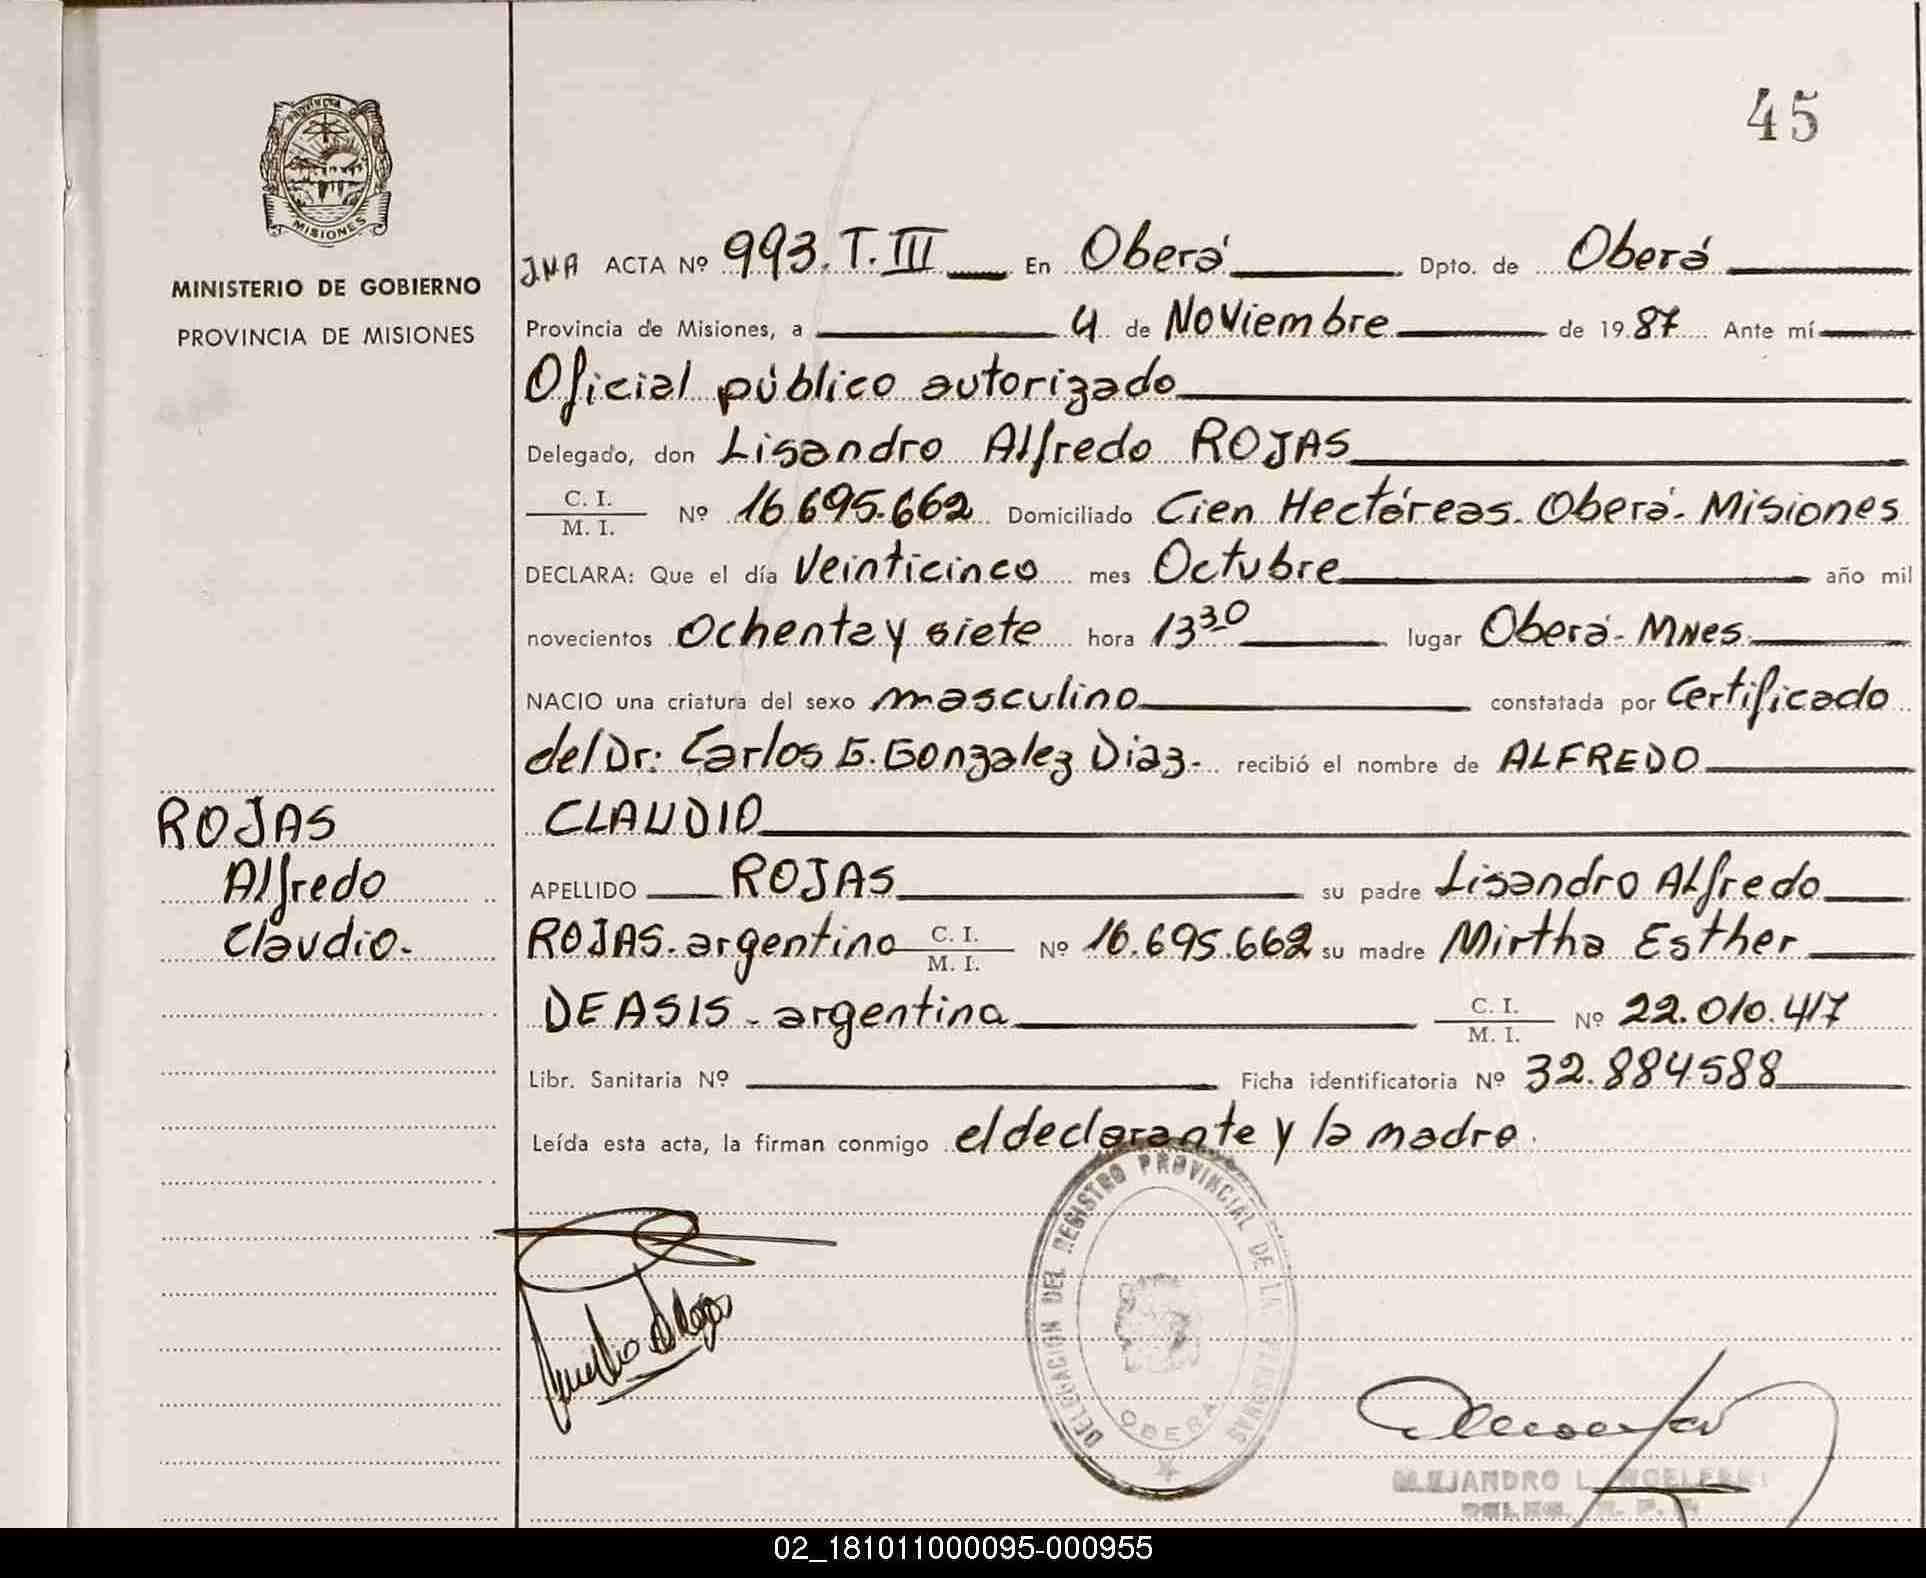 45
PROVINCIA
MISIONES
MINISTERIO DE GOBIERNO
PROVINCIA DE MISIONES
J.M.A ACTA Nº 993.T.III En Oberá Dpto. de Oberá
Provincia de Misiones, a 4 de Noviembre de 1987 Ante mí
Oficial público autorizado
Delegado, don Lisandro Alfredo ROJAS
C. I.
M. I.
Nº 16.695.662 Domiciliado Cien Hectáreas. Oberá. Misiones
DECLARA: Que el día Veinticinco mes Octubre año mil
novecientos Ochenta y siete hora 13 30 lugar Oberá - Mnes.
NACIO una criatura del sexo masculino constatada por Certificado
del Dr: Carlos G. Gonzalez Diaz. recibió el nombre de ALFREDO
CLAUDIO
ROJAS
Alfredo
Claudio.
APELLIDO ROJAS su padre Lisandro Alfredo
ROJAS. argentino C. I. M. I. Nº 16.695.662 su madre Mirtha Esther
DEASIS - argentina C. I. M. I. Nº 22.010.417
Libr. Sanitaria Nº Ficha identificatoria Nº 32.884588
Leída esta acta, la firman conmigo el declarante y la madre.
DELEGACION DEL REGISTRO PROVINCIAL DE LAS PERSONAS
OBERA
ALEJANDRO L.
02_181011000095-000955